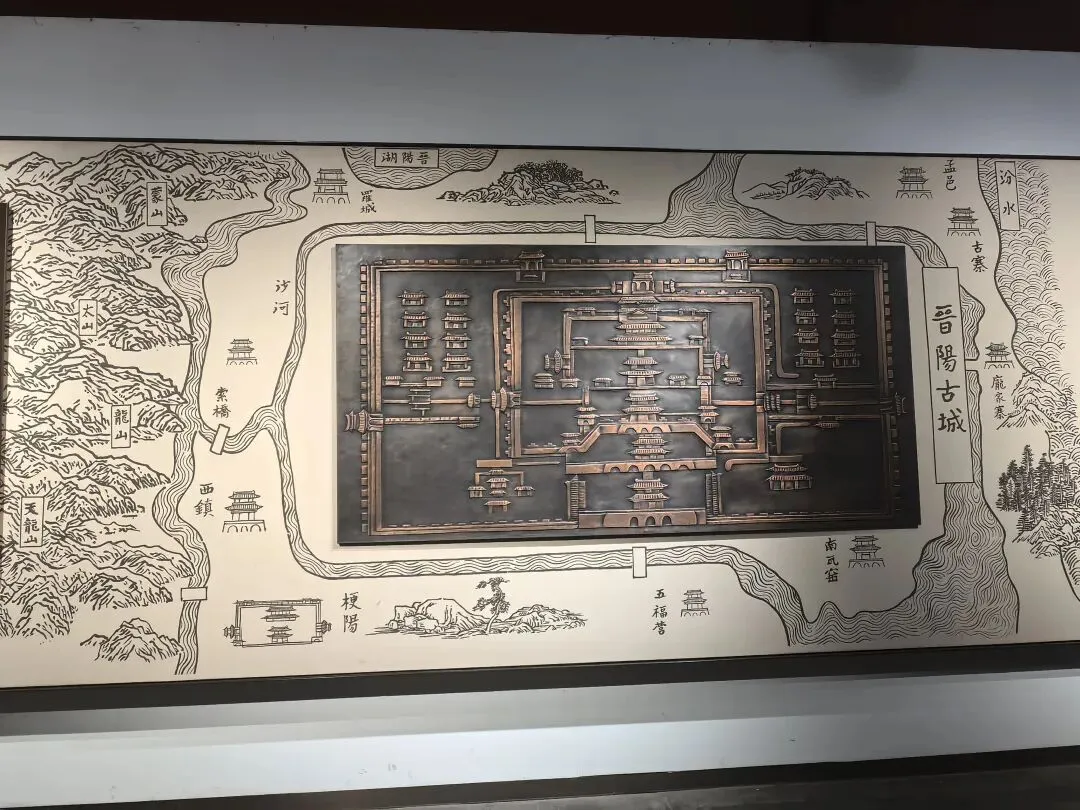 蒙山
羅城
晉陽湖
孟邑
汾水
古寨
沙河
太山
晉陽古城
索橋
龍山
龐家寨
西鎮
天龍山
南瓦窑
梗陽
五福营